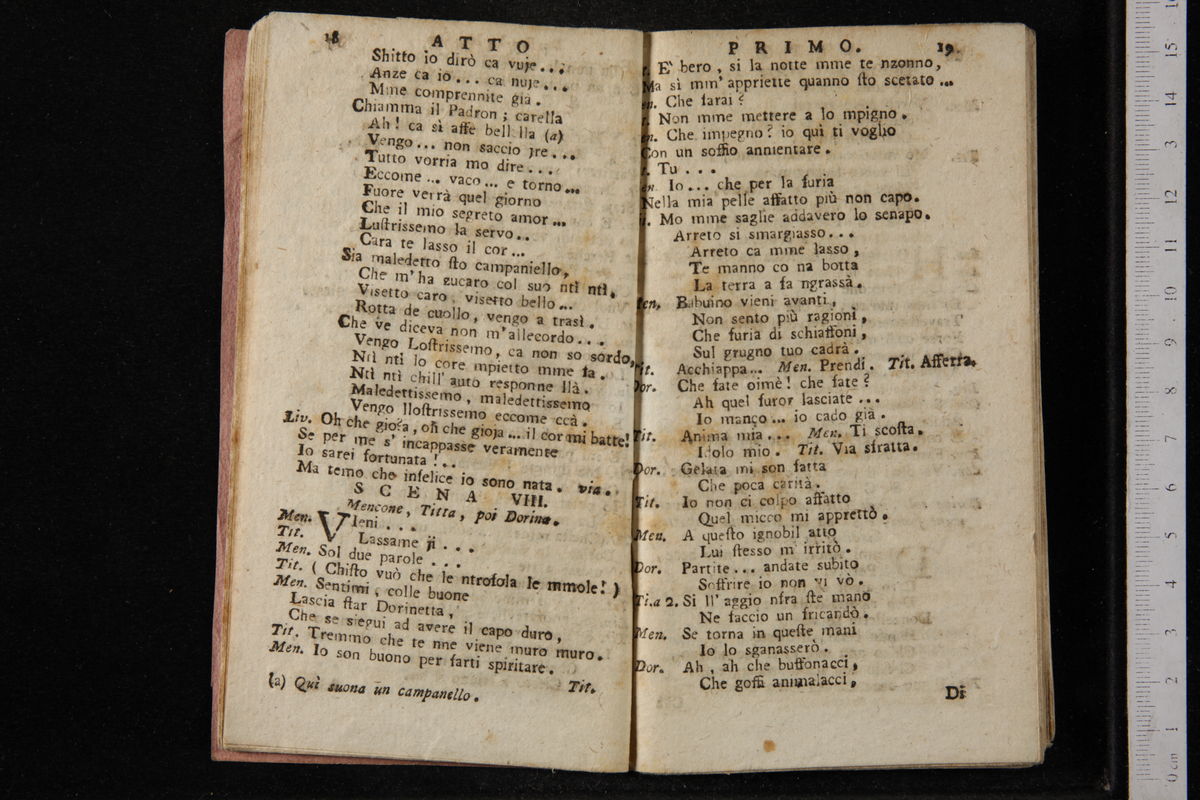 18 ATTO
Shitto io dirò ca vuje...
Anze ca io... ca nuje...
Mme comprennite già.
Chiamma il Padron; carella
Ah! ca sì affè bella (a)
Vengo... non saccio jre...
Tutto vorria mo dire...
Eccome... vaco... e torno...
Fuore verrà quel giorno
Che il mio segreto amor...
Luſtrissemo la servo..
Cara te lasso il cor...
Sia maledetto ſto campaniello,
Che m'ha zucaro col suo ntì ntì,
Visetto caro, visetto bello...
Rotta de cuollo, vengo a trasì.
Che ve diceva non m'allecordo...
Vengo Loſtrissemo, ca non so sordo,
Ntì ntì lo core mpietto mme fa.
Ntì ntì chill' auto responne llà.
Maledettissemo, maledettissemo
Vengo lloſtrissemo eccome ccà.
Liv. Oh che gioja, oh che gioja... il cor mi batte!
Se per me s'incappasse veramente
Io sarei fortunata!..
Ma temo che infelice io sono nata. via.
SCENA VIII.
Mencone, Titta, poi Dorina.
Men. VIeni...
Tit. Lassame jì...
Men. Sol due parole...
Tit. (Chiſto vuò che le ntrofola le mmole!)
Men. Sentimi, colle buone
Lascia ſtar Dorinetta,
Che se siegui ad avere il capo duro,
Tit. Tremmo che te nne viene muro muro.
Men. Io son buono per farti spiritare.
(a) Quì suona un campanello. Tit.
PRIMO. 19
t. E' bero, si la notte mme te nzonno,
Ma sì mm'appriette quanno ſto scetato...
en. Che farai?
t. Non mme mettere a lo mpigno.
en. Che impegno? io quì ti voglio
Con un soffio annientare.
t. Tu...
en. Io... che per la furia
Nella mia pelle affatto più non capo.
t. Mo mme saglie addavero lo senapo.
Arreto si smargiasso...
Arreto ca mme lasso,
Te manno co na botta
La terra a fa ngrassà.
en. Babuino vieni avanti,
Non sento più ragioni,
Che furia di schiaffoni,
Sul grugno tuo cadrà.
it. Acchiappa... Men. Prendi. Tit. Afferra.
Dor. Che fate oimè! che fate?
Ah quel furor lasciate...
Io manco... io cado già.
Tit. Anima mia... Men. Ti scoſta.
Idolo mio. Tit. Via sfratta.
Dor. Gelata mi son fatta
Che poca carità.
Tit. Io non ci colpo affatto
Quel micco mi apprettò.
Men. A queſto ignobil atto
Lui ſtesso m'irritò.
Dor. Partite... andate subito
Soffrire io non vi vò.
Ti.a 2. Si ll'aggio nfra ſte mano
Ne faccio un fricandò.
Men. Se torna in queſte mani
Io lo sganasserò.
Dor. Ah, ah che buffonacci,
Che goffi animalacci,
Di
0 cm 1 2 3 4 5 6 7 8 9 10 11 12 13 14 15